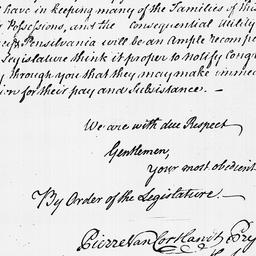 have in keeping many of the Families of this
Possessions, and the Consequential Utility
Pensilvania will be an Ample recompen
Legislature think it proper to notify Congr
through you that they may make immed
ion for their pay and Subsistance. —
We are with due Respect
Gentlemen,
your most obedient
By Order of the Legislature. —
Pierre Van Cortlandt